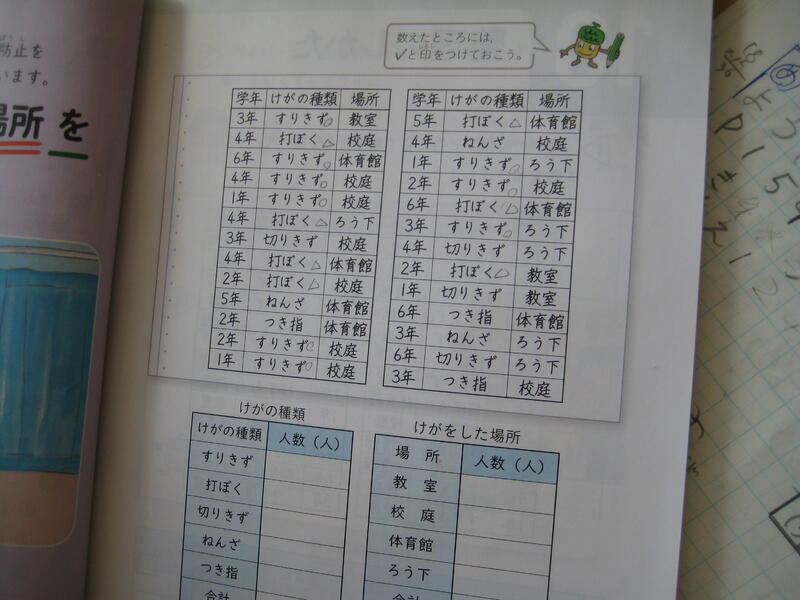 防止を
います。
場所を
数えたところには、
✓と印をつけておこう。
学年 けがの種類 場所
3年 すりきず 教室
4年 打ぼく 校庭
6年 すりきず 体育館
4年 すりきず 校庭
1年 すりきず 校庭
4年 打ぼく ろう下
3年 切りきず 校庭
4年 打ぼく 体育館
2年 打ぼく 校庭
5年 ねんざ 体育館
2年 つき指 体育館
2年 すりきず 校庭
1年 すりきず 校庭
学年 けがの種類 場所
5年 打ぼく 体育館
4年 ねんざ 校庭
1年 すりきず ろう下
2年 すりきず 校庭
6年 打ぼく 体育館
3年 すりきず ろう下
4年 切りきず ろう下
2年 打ぼく 教室
1年 切りきず 教室
6年 つき指 体育館
3年 ねんざ ろう下
6年 切りきず ろう下
3年 つき指 校庭
けがの種類
けがの種類 人数（人）
すりきず
打ぼく
切りきず
ねんざ
つき指
合計
けがをした場所
場所 人数（人）
教室
校庭
体育館
ろう下
合計